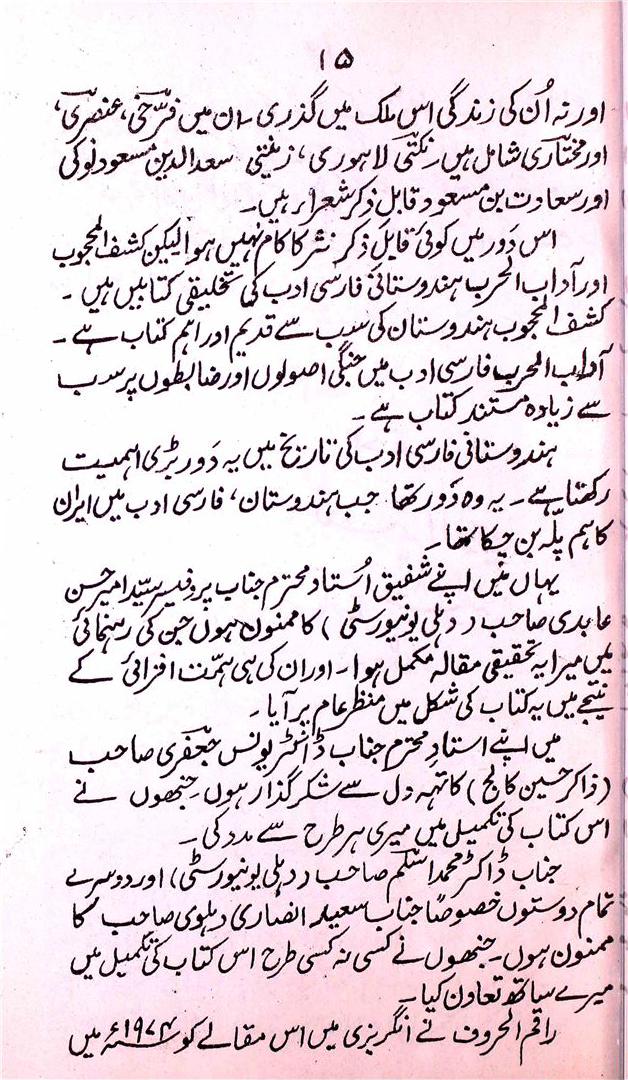 ۱۵
اور نہ اُن کی زندگی اس ملک میں گذری۔ ان میں فرّخیؔ، عنصریؔ،
اور مختاریؔ شامل ہیں۔ نکتیؔ لاہوری، زینتی سعد الدین مسعود نوکی
اور سعادت بن مسعود قابلِ ذکر شعراء ہیں۔
اس دَور میں کوئی قابلِ ذکر نثر کا کام نہیں ہوا لیکن کشف المحجوب
اور آداب الحرب ہندوستانی فارسی ادب کی تخلیقی کتابیں ہیں۔
کشف المحجوب ہندوستان کی سب سے قدیم اور اہم کتاب ہے۔
آداب الحرب فارسی ادب میں جنگی اصولوں اور ضابطوں پر سب
سے زیادہ مستند کتاب ہے۔
ہندوستانی فارسی ادب کی تاریخ میں یہ دَور بڑی اہمیت
رکھتا ہے۔ یہ وہ دَور تھا جب ہندوستان، فارسی ادب میں ایران
کا ہم پلّہ بن چکا تھا۔
یہاں میں اپنے شفیق اُستاد محترم جناب پروفیسر سیّد امیر حسن
عابدی صاحب (دہلی یونیورسٹی) کا ممنون ہوں جن کی رہنمائی
میں میرا یہ تحقیقی مقالہ مکمل ہوا۔ اور ان کی ہی ہمّت افزائی کے
نتیجے میں یہ کتاب کی شکل میں منظرِ عام پر آیا۔
میں اپنے استادِ محترم جناب ڈاکٹر یونس جعفری صاحب
(ذاکر حسین کالج) کا تہہ دل سے شکر گذار ہوں۔ جنھوں نے
اس کتاب کی تکمیل میں میری ہر طرح سے مدد کی۔
جناب ڈاکٹر محمد اسلم صاحب (دہلی یونیورسٹی) اور دوسرے
تمام دوستوں خصوصًا جناب سعید انصاری دہلوی صاحب کا
ممنون ہوں۔ جنھوں نے کسی نہ کسی طرح اس کتاب کی تکمیل میں
میرے ساتھ تعاون کیا۔
راقم الحروف نے انگریزی میں اس مقالے کو ۱۹۷۴ء میں